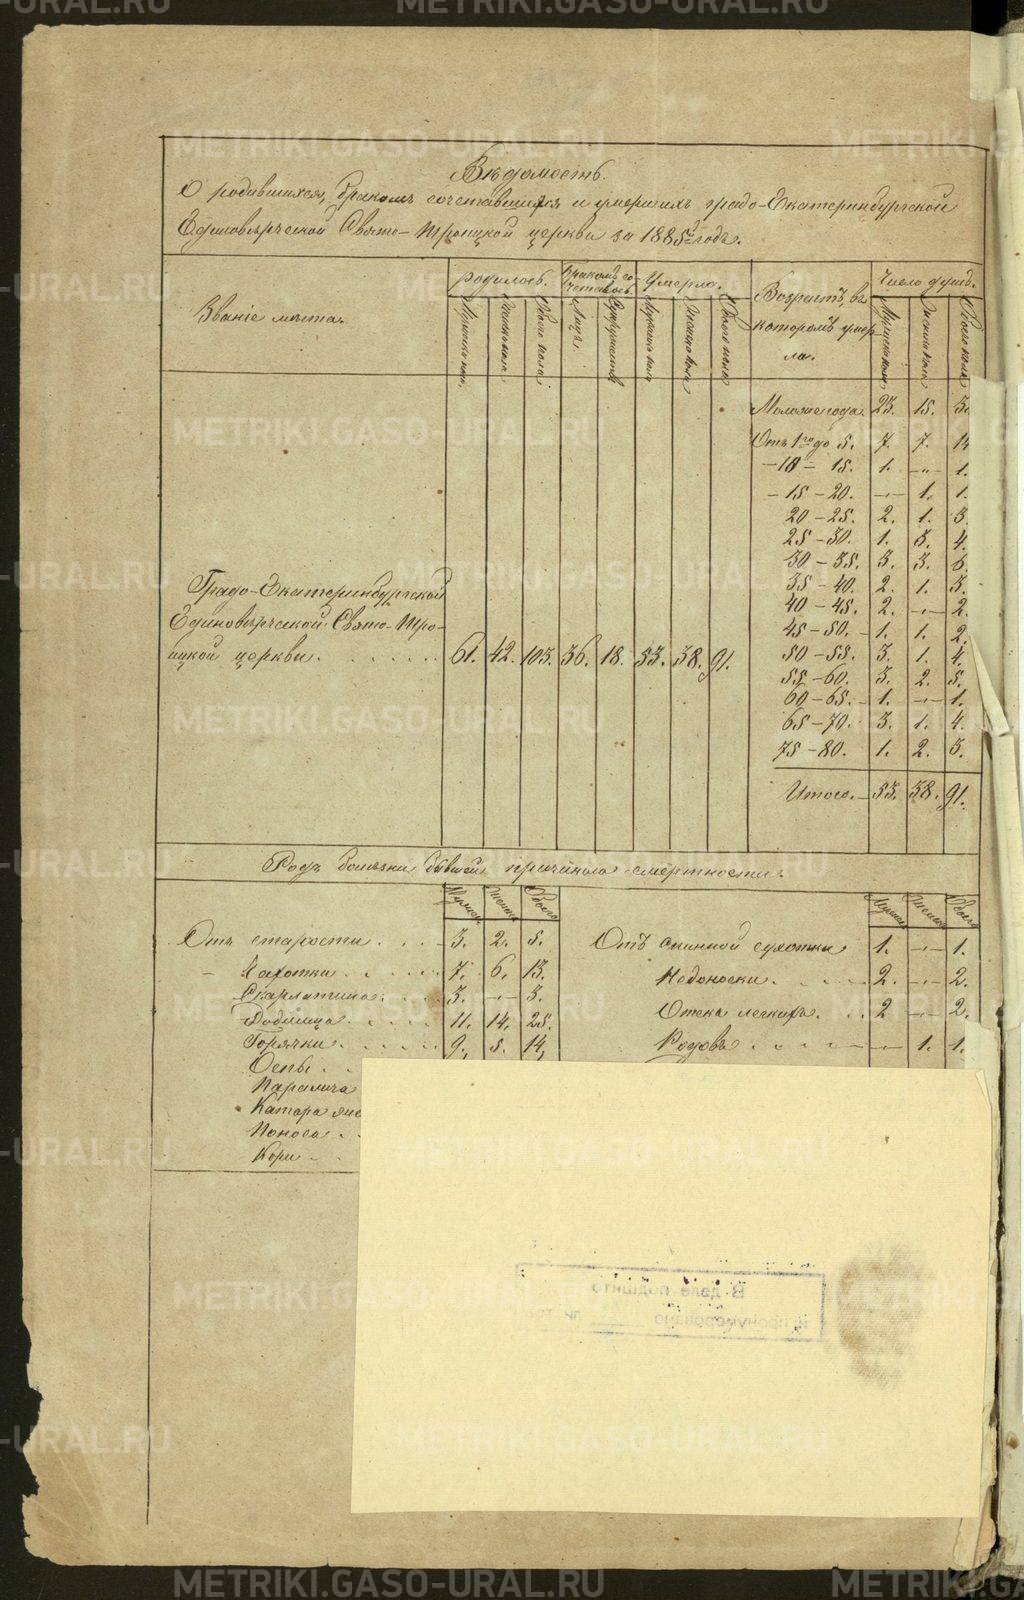 Вѣдомость.
О родившихся, бракомъ сочетавшихся и умершихъ градо-Екатеринбургской
Единовѣрческой Свято-Троицкой церкви за 1885й годъ.
Званіе мѣста.
родилось.
Бракомъ со-
четалось.
Умерло.
Возрастъ, въ
которомъ умер-
ла.
Число душъ.
Мужеска пола.
Женска пола
Обоего пола
Лицъ.
Супружествъ
Мужеска пола
Женска пола
Обоего пола
Мужеска пола
Женска пола
Обоего пола
Моложе года 23. 15.
Отъ 1го до 5. 7. 7. 14
-10- 15. 1. -„- 1.
-15-20. -„- 1. 1.
20-25. 2. 1. 3.
25-30. 1. 3. 4.
30-35. 3. 3. 6.
35-40. 2. 1. 3.
40-45. 2. -„- 2.
45-50. 1. 1. 2.
50-55. 3. 1. 4.
55-60. 3. 2. 5.
60-65. 1. -„- 1.
65-70. 3. 1. 4.
75-80. 1. 2. 3.
Итого. 53. 38. 91.
Градо-Екатеринбургской
Единовѣрческой Свято-Тро-
ицкой церкви. 61. 42. 103. 36. 18. 53. 38. 91.
Родъ болѣзни бывшей причиною смертности.
Мужск. Женска Обоего
Отъ старости. 3. 2. 5.
- Чахотки. 7. 6. 13.
Скарлатина. 3. -„- 3.
Родимца. 11. 14. 25.
Горячки. 9. 5. 14.
Оспы.
Паралича
Катара
Поноса.
Кори
Мужска Женска Обоего
Отъ спинной сухотки 1. -„- 1.
Недоноски. 2. -„- 2.
Отека легкихъ. 2 -„- 2.
Родовъ - 1. 1.
В деле подшито
и пронумеровано
METRIKI.GASO-URAL.RU